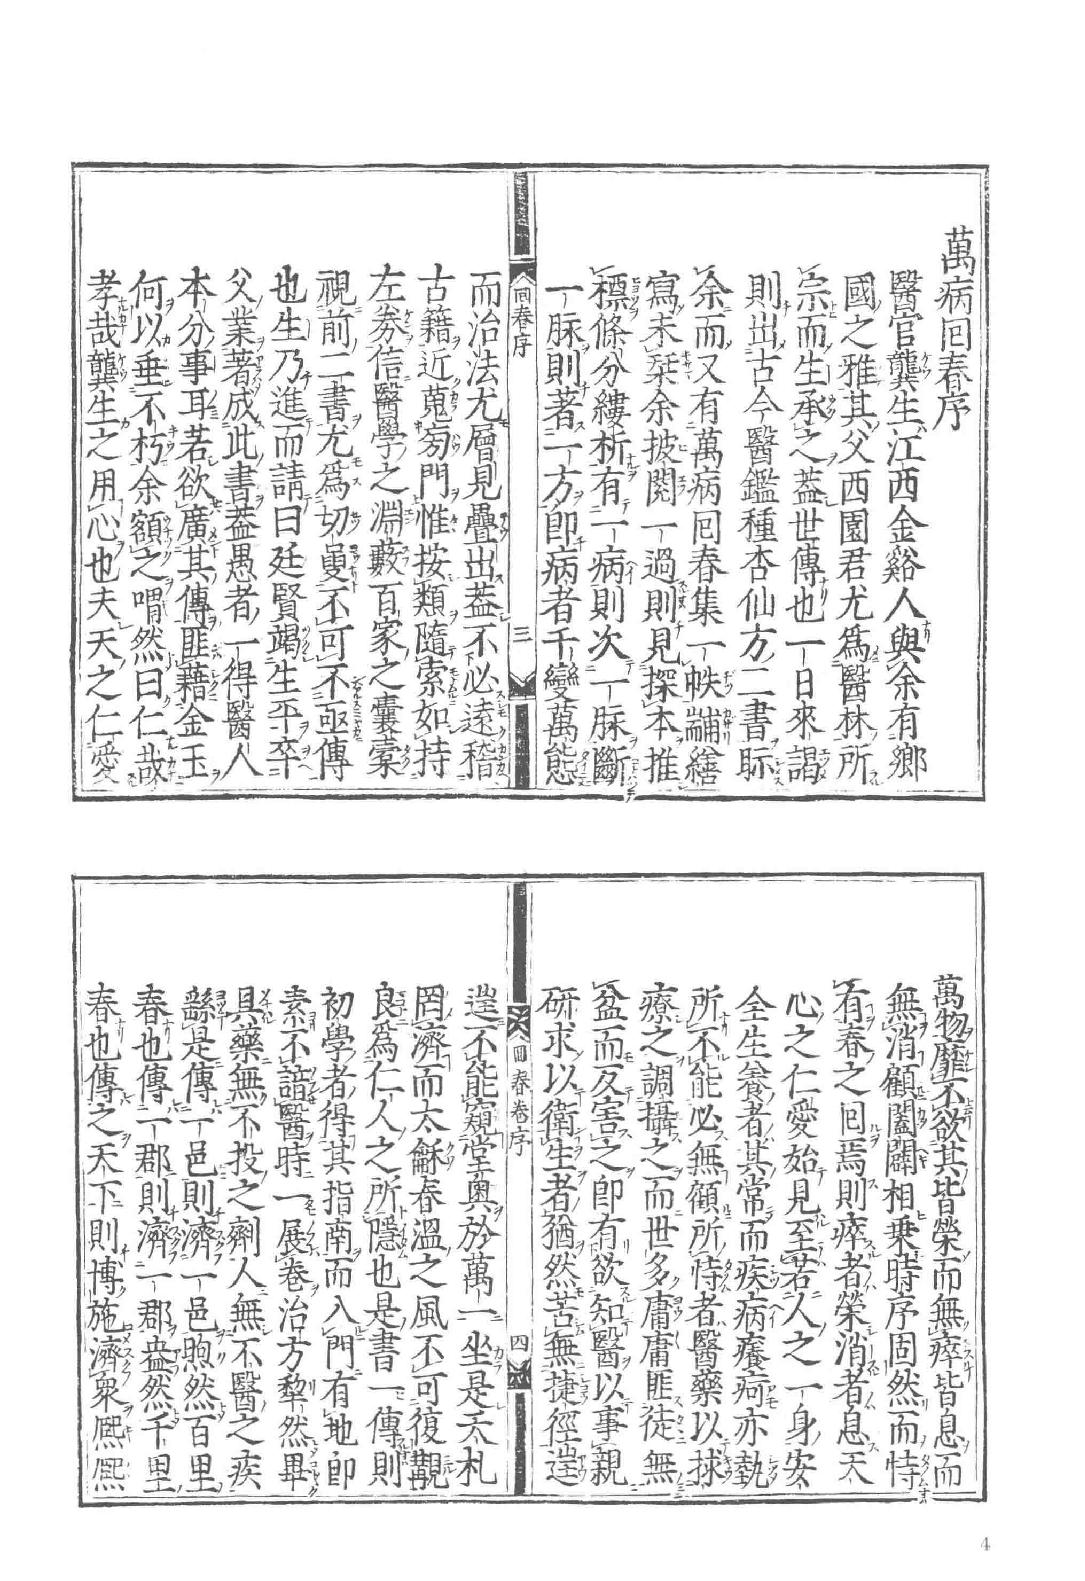 萬病回春序
醫官龔生江西金谿人與余有鄉
國之雅其父西園君尤爲醫林所
宗而生承之葢世傳也一日來謁
則出古今醫鑑種杏仙方二書眎
余而又有萬病回春集一帙黼繪
寫未栞余披閱一過則見探本推
標條分縷析有一病則次一脉斷
一脉則著一方即病者千變萬態
回春序
三
而治法尤層見疊出葢不必遠稽
古籍近蒐旁門惟按類隨索如持
左劵信醫學之淵藪百家之囊槖
視前二書尤爲切叟不可不亟傳
也生乃進而請曰廷賢竭生平卒
父業著成此書葢愚者一得醫人
本分事耳若欲廣其傳匪藉金玉
何以垂不朽余額之喟然曰仁哉
孝哉龔生之用心也夫天之仁愛
萬物靡不欲其皆榮而無瘁皆息而
無消顧闔闢相乗時序固然而恃
有春之回焉則瘁者榮消者息天
心之仁愛始見至若人之一身安
全生養者其常而疾病癢疴亦勢
所不能必無顧所恃者醫藥以捄
療之調攝之而世多庸庸匪徒無
益而反害之即有欲知醫以事親
研求以衛生者猶然苦無捷徑逞
回春卷序
四
逞不能窺堂奧於萬一坐是夭札
罔濟而太龢春溫之風不可復覩
良爲仁人之所隱也是書一傳則
初學者得其指南而入門有地即
素不諳醫時一展卷治方犂然畢
具藥無不投之劑人無不醫之疾
繇是傳一邑則濟一邑煦然百里
春也傳一郡則濟一郡盎然千里
春也傳之天下則博施濟衆熈熈
4